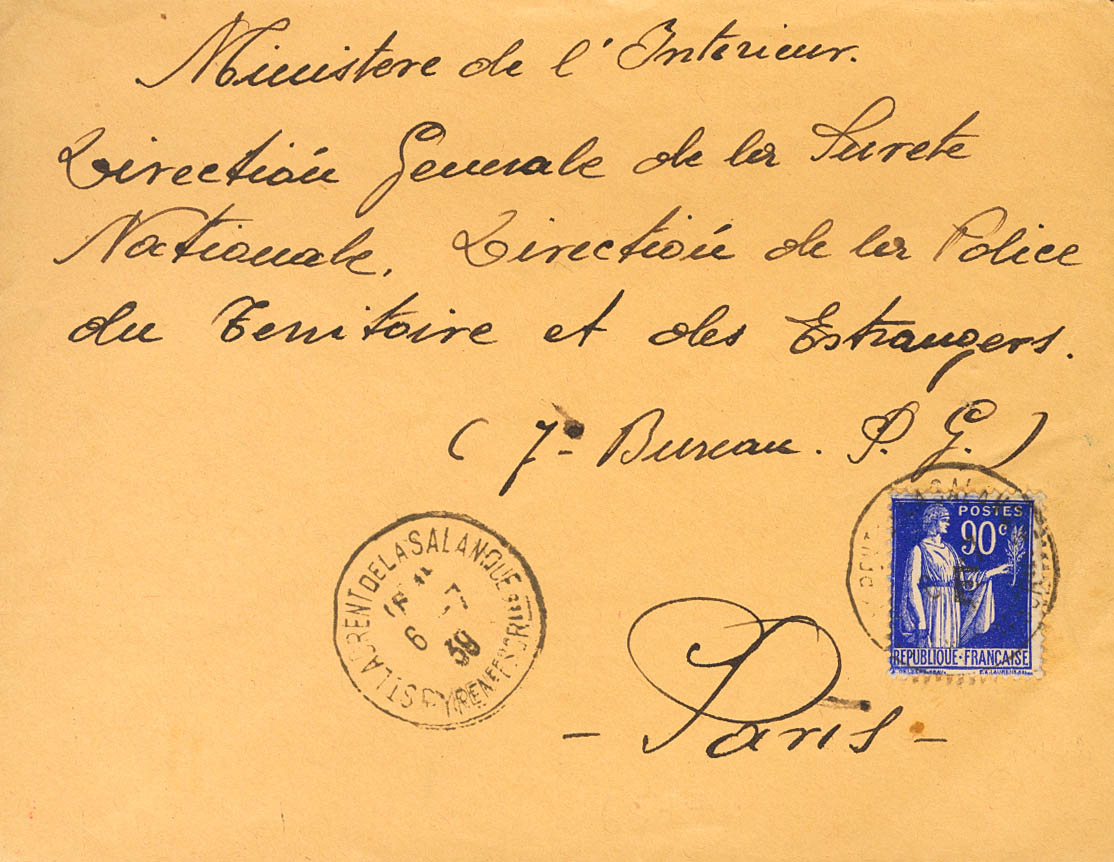 Ministere de l'Interieur.
Direction Generale de la Surete
Nationale, Direction de la Police
du Territoire et des Estrangers.
( 7º Bureau. P. G. )
POSTES
90c
REPUBLIQUE·FRANÇAISE
ST LAURENT DE LA SALANQUE
6
39
- Paris -